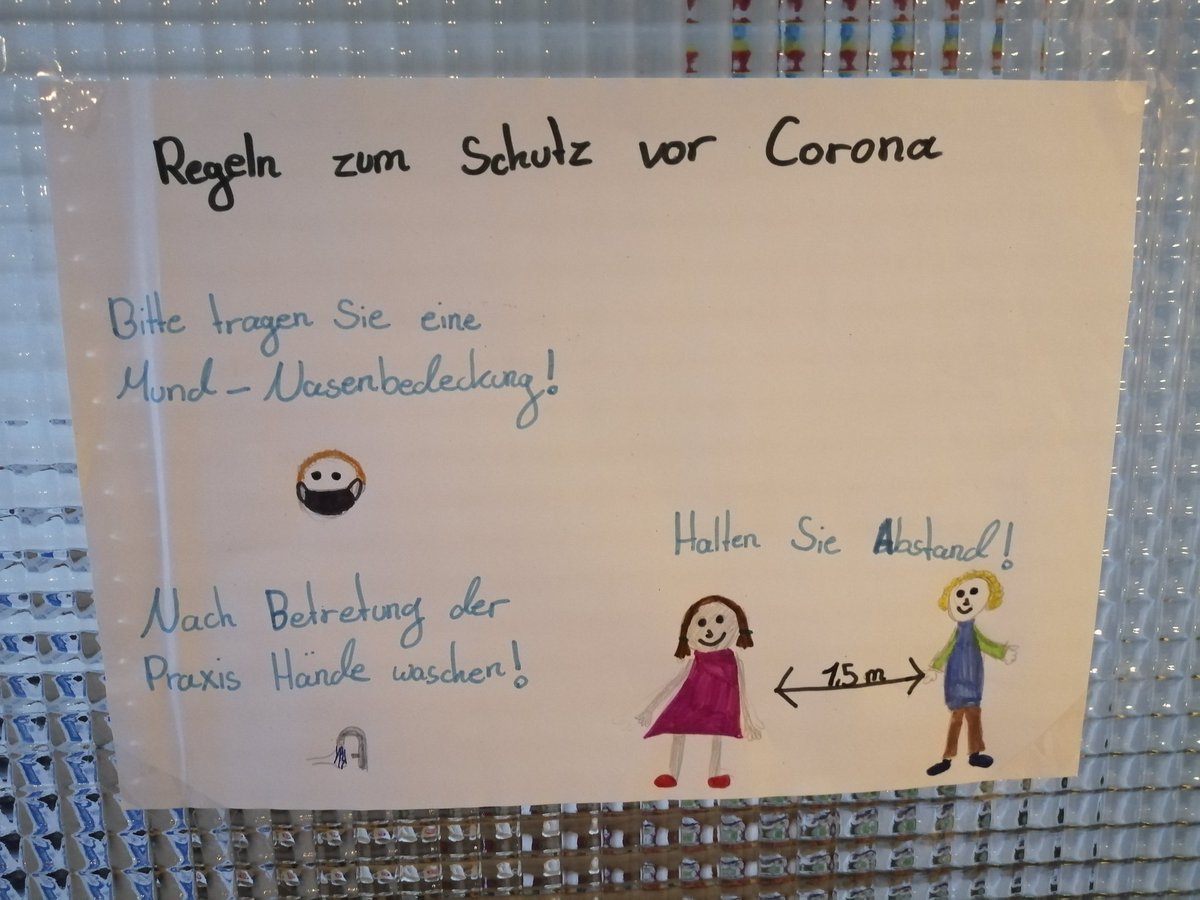 Regeln zum Schutz vor Corona
Bitte tragen Sie eine
Mund-Nasenbedeckung!
Nach Betretung der
Praxis Hände waschen!
Halten Sie Abstand!
1,5 m